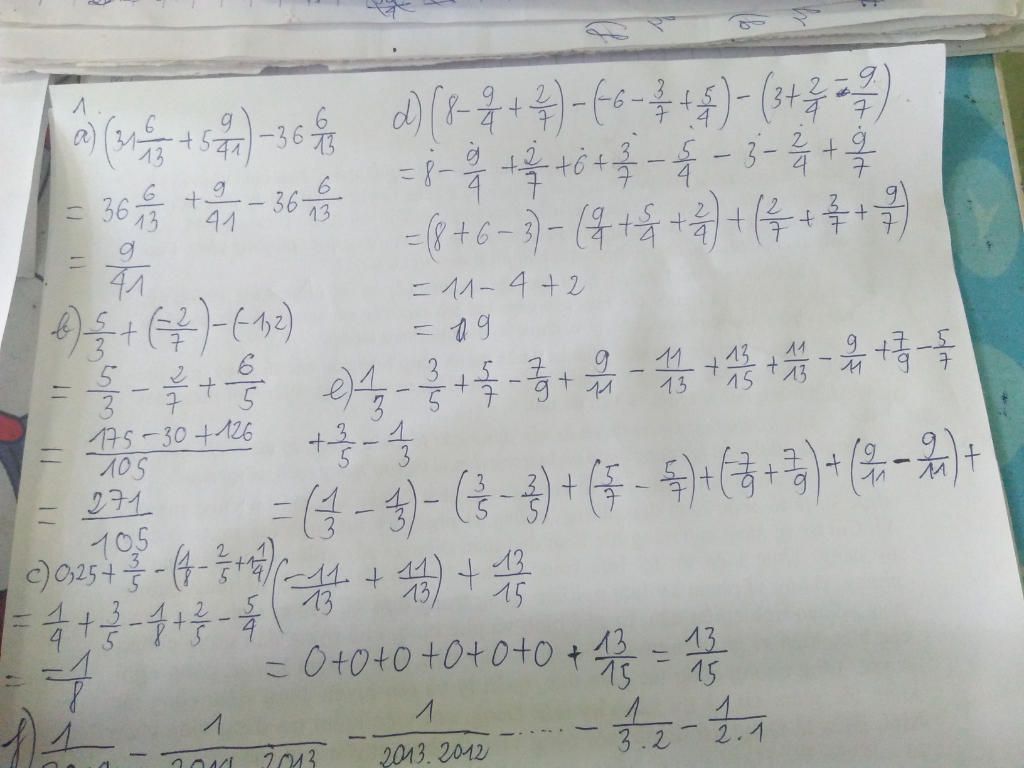 1.
a) (31 6/13 + 5 9/41) - 36 6/13
= 36 6/13 + 9/41 - 36 6/13
= 9/41
b) 5/3 + (-2/7) - (-1,2)
= 5/3 - 2/7 + 6/5
= (175 - 30 + 126)/105
= 271/105
c) 0,25 + 3/5 - (1/8 - 2/5 + 1 1/4)
= 1/4 + 3/5 - 1/8 + 2/5 - 5/4
= -1/8
d) (8 - 9/4 + 2/7) - (-6 - 3/7 + 5/4) - (3 + 2/4 - 9/7)
= 8 - 9/4 + 2/7 + 6 + 3/7 - 5/4 - 3 - 2/4 + 9/7
= (8 + 6 - 3) - (9/4 + 5/4 + 2/4) + (2/7 + 3/7 + 9/7)
= 11 - 4 + 2
= 9
e) 1/3 - 3/5 + 5/7 - 7/9 + 9/11 - 11/13 + 13/15 + 11/13 - 9/11 + 7/9 - 5/7
+ 3/5 - 1/3
= (1/3 - 1/3) - (3/5 - 3/5) + (5/7 - 5/7) + (-7/9 + 7/9) + (9/11 - 9/11) +
(-11/13 + 11/13) + 13/15
= 0 + 0 + 0 + 0 + 0 + 0 + 13/15 = 13/15
f) 1/ - 1/2014.2013 - 1/2013.2012 - ..... - 1/3.2 - 1/2.1